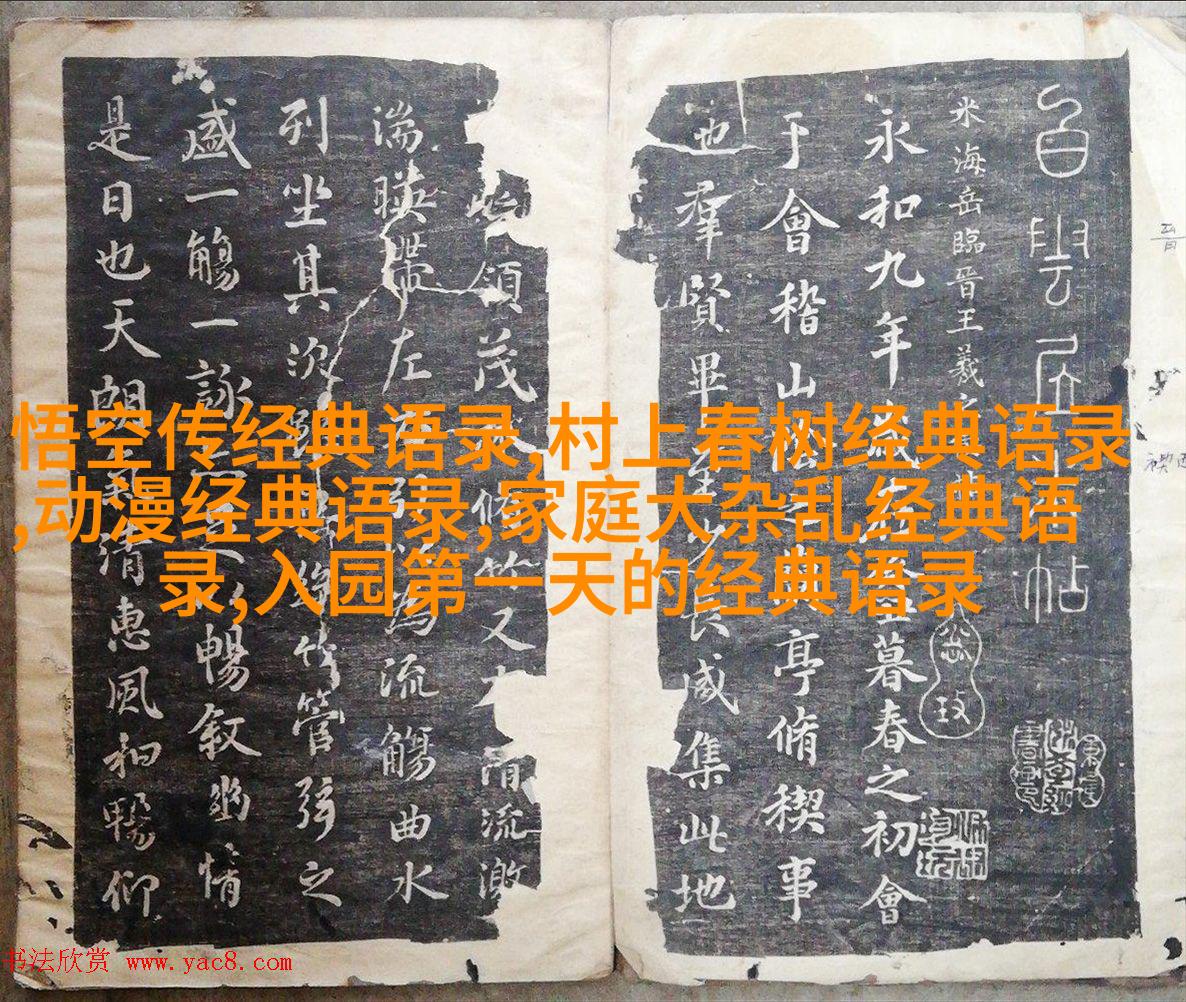 悟空传经典语录,村上春树经典语录
,动漫经典语录,家庭大杂乱经典语
录,入园第一天的经典语录
白雲居米帖
米海岳臨晉王羲之
永和九年歲在癸丑暮春之初會
于會稽山陰之蘭亭脩禊事
也羣賢畢至少長咸集此地
領茂林脩竹又有清流激
湍暎帶左右引以為流觴曲水
列坐其次雖無絲竹管弦之
盛一觴一詠亦足以暢叙幽情
是日也天朗氣清惠風和暢仰
书法欣赏 www.yac8.com